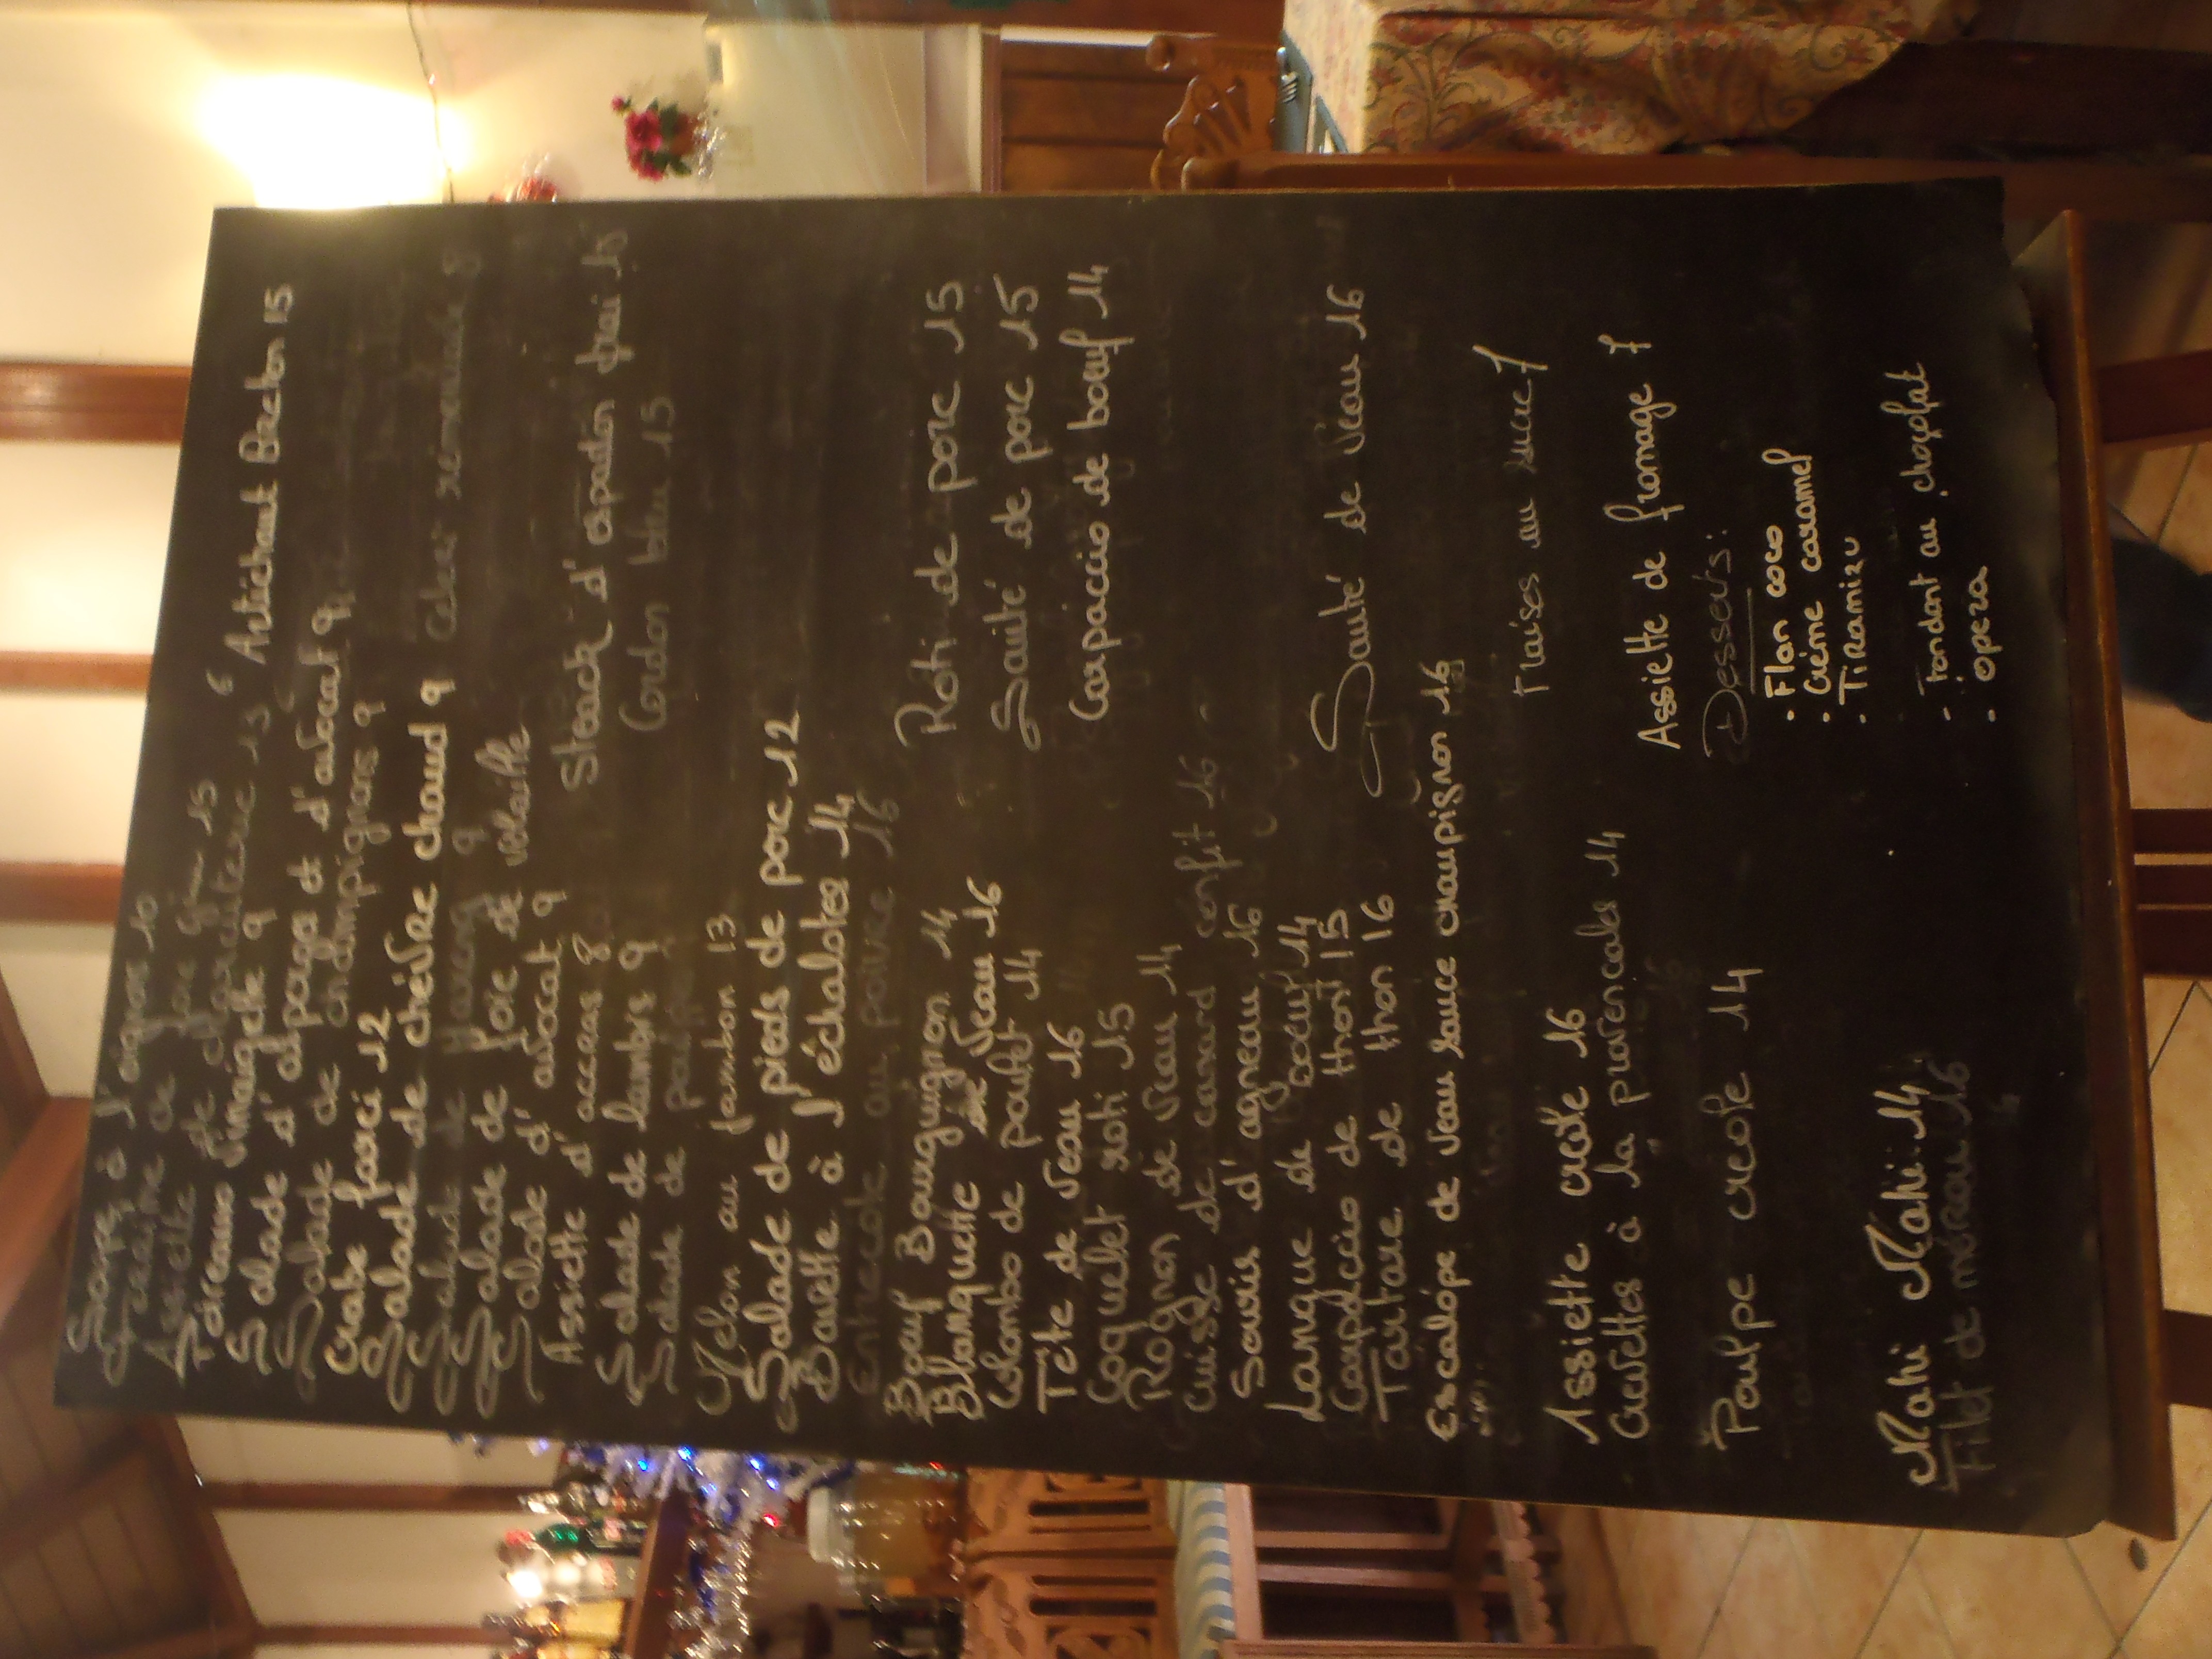 à l'aigre 10
de foie gras 15
Assiette de charcuterie 15 6
Poireaux vinaigrette 9 Artichaut Breton 15
Salade d'alpaga et d'avocat 9
Salade de champignons 9
Crabe farci 12
Salade de chèvre chaud 9 Celeri rémoulade 8
Salade de Hareng 9
Salade de foie de volaille
Salade d'avocat 9
Assiette d'accras 8 Steack d'espadon frai 15
Salade de lambis 9 Cordon bleu 15
Salade de
Melon au jambon 13
Salade de pieds de porc 12
Bavette à l'échalotes 14
Entrecote au poivre 16
Bœuf Bourguignon 14 Roti de porc 15
Blanquette de Veau 16
Colombo de poulet 14 Sauté de porc 15
Tête de Veau 16 Carpaccio de bœuf 14
Coquelet roti 15
Rognon de Veau 14
Cuisse de canard confit 16
Souris d'agneau 16
Langue de Boeuf 14
Carpaccio de thon 15 Sauté de Veau 16
Tartare de thon 16
Escalope de Veau sauce champignon 16
Fraises au sucre 7
Assiette 16
Crevettes à la provencales 14
Assiette de fromage 7
Poulpe créole 14
Desserts:
• Flan coco
• Crème caramel
• Tiramisu
Mahi Mahi 14
• Fondant au chocolat
Filet de 16
• opera